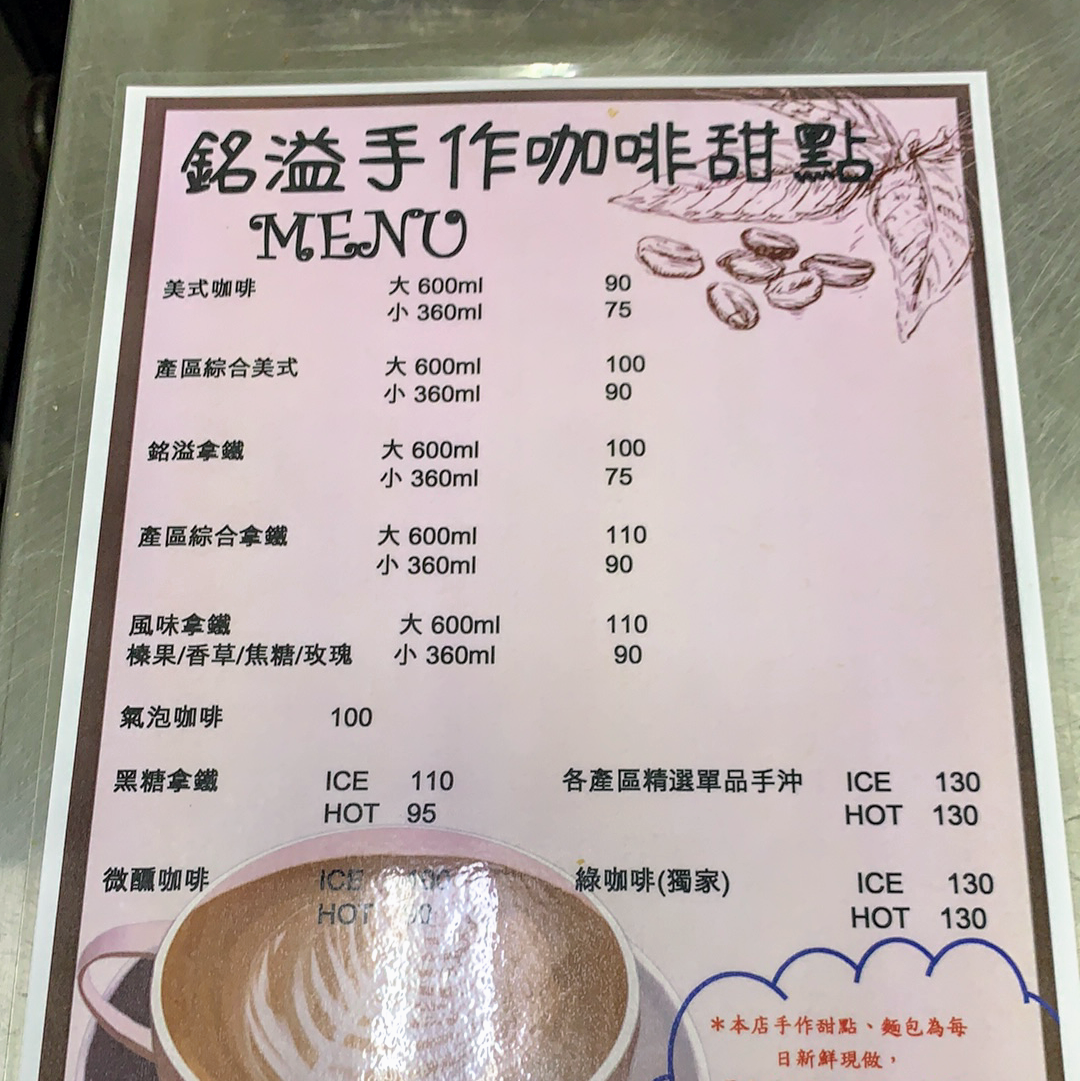 銘溢手作咖啡甜點
MENU
美式咖啡 大 600ml 90
小 360ml 75
產區綜合美式 大 600ml 100
小 360ml 90
銘溢拿鐵 大 600ml 100
小 360ml 75
產區綜合拿鐵 大 600ml 110
小 360ml 90
風味拿鐵 大 600ml 110
榛果/香草/焦糖/玫瑰 小 360ml 90
氣泡咖啡 100
黑糖拿鐵 ICE 110 各產區精選單品手沖 ICE 130
HOT 95 HOT 130
微醺咖啡 ICE 綠咖啡(獨家) ICE 130
HOT HOT 130
＊本店手作甜點、麵包為每
日新鮮現做，